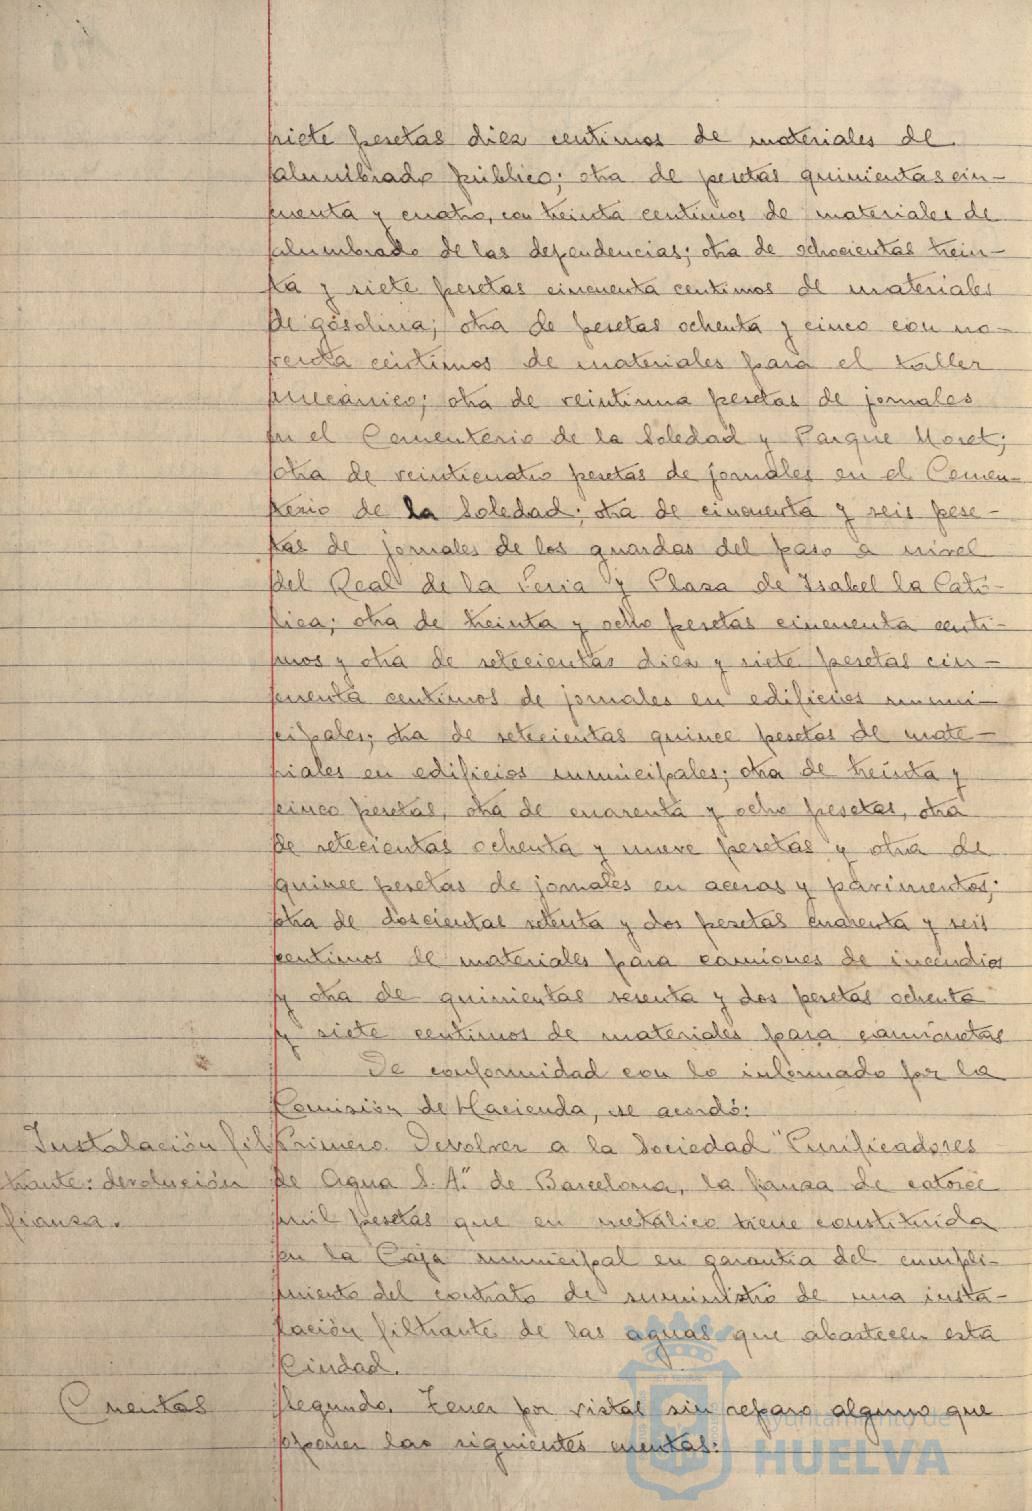 siete pesetas diez centimos de materiales de
alumbrado público; otra de pesetas quinientas cin-
cuenta y cuatro, con treinta centimos de materiales de
alumbrado de las dependencias; otra de ochocientas trein-
ta y siete pesetas cincuenta centimos de materiales
de gasolina; otra de pesetas ochenta y cinco con no-
venta céntimos de materiales para el taller
mecánico; otra de veintiuna pesetas de jornales
en el Cementerio de la Soledad y Parque Moret;
otra de veinticuatro pesetas de jornales en el Cemen-
terio de la Soledad; otra de cincuenta y seis pese-
tas de jornales de los guardas del paso a nivel
del Real de la Feria y Plaza de Isabel la Cató-
lica; otra de treinta y ocho pesetas cincuenta centi-
mos y otra de setecientas diez y siete pesetas cin-
cuenta centimos de jornales en edificios muni-
cipales; otra de setecientas quince pesetas de mate-
riales en edificios municipales; otra de treinta y
cinco pesetas, otra de cuarenta y ocho pesetas, otra
de setecientas ochenta y nueve pesetas y otra de
quince pesetas de jornales en aceras y pavimentos;
otra de doscientas setenta y dos pesetas cuarenta y seis
centimos de materiales para camiones de incendios
y otra de quinientas sesenta y dos pesetas ochenta
y siete centimos de materiales para camionetas
De conformidad con lo informado por la
Comisión de Hacienda, se acordó:
Instalación fil- Primero. Devolver a la Sociedad "Purificadores
trante: devolución de Agua S. A." de Barcelona, la fianza de catorce
fianza. mil pesetas que en metálico tiene constituida
en la Caja municipal en garantía del cumpli-
miento del contrato de suministro de una insta-
lación filtrante de las aguas que abastecen esta
Ciudad.
Cuentas Segundo. Tener por vistas sin reparo alguno que
oponer las siguientes cuentas:
Ayuntamiento de
HUELVA